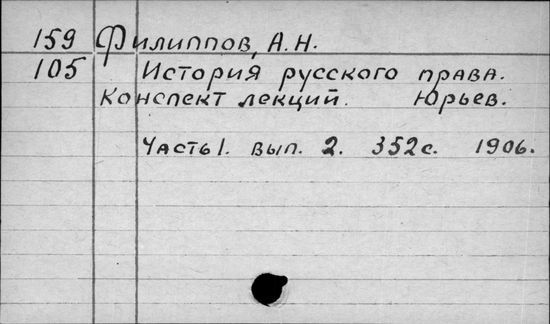 159 Филиппов, А.Н.
105 История русского права.
Конспект лекций. Юрьев.
Часть I. вып. 2. 352с. 1906.